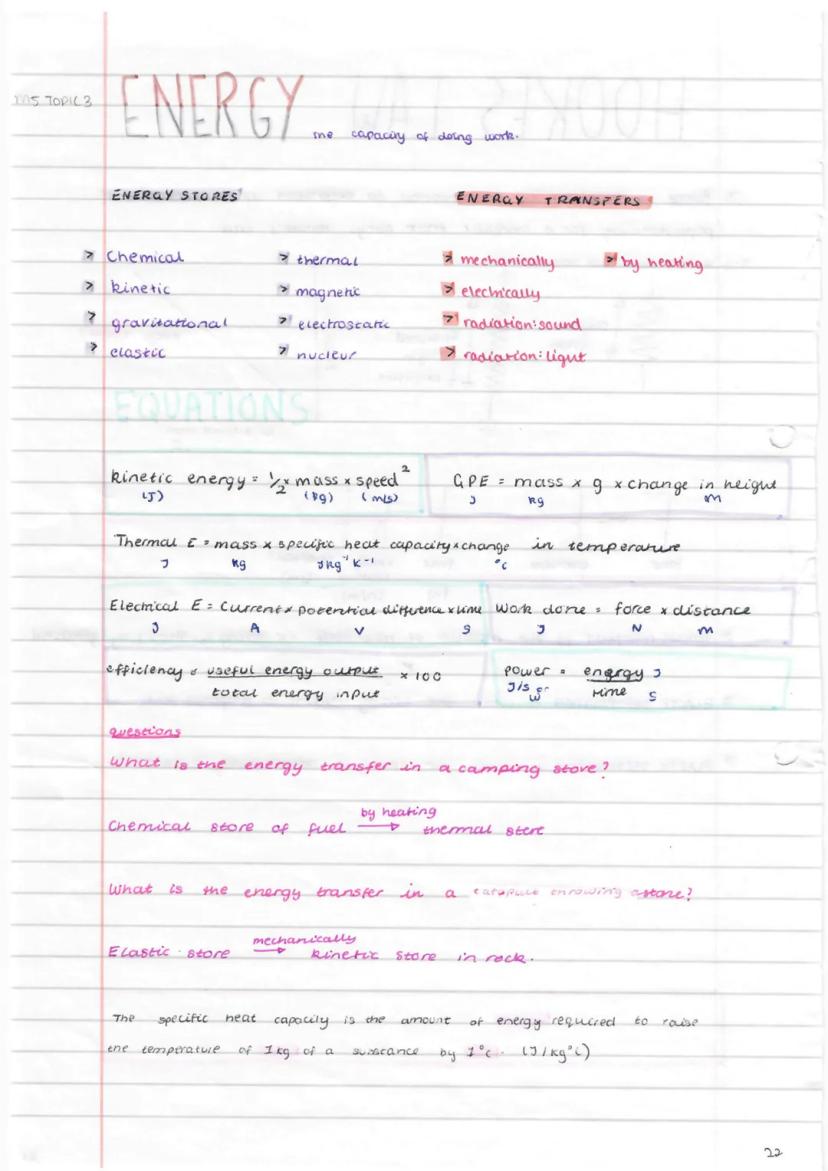 M5 TOPIC 3
ENERGY
the capacity of doing work.
ENERGY STORES
ENERGY TRANSFERS
> Chemical
> thermal
> mechanically
> by heating
> kinetic
> magnetic
> electrically
> gravitational
> electrostatic
> radiation: sound
> elastic
> nucleur
> radiation: light
EQUATIONS
kinetic energy = 1/2 × mass × speed²
(J) (kg) (m/s)
GPE = mass × g × change in height
J kg m
Thermal E = mass × specific heat capacity × change in temperature
J kg Jkg⁻¹K⁻¹ °C
Electrical E = Current × potential difference × time
J A V S
Work done = force × distance
J N m
efficiency = useful energy output / total energy input × 100
power = energy J / time S
J/s or W
questions
What is the energy transfer in a camping stove?
by heating
Chemical store of fuel → thermal store
What is the energy transfer in a catapult throwing a stone?
mechanically
Elastic store → kinetic store in rock.
The specific heat capacity is the amount of energy required to raise
the temperature of 1kg of a substance by 1°C. (J/kg°C)
22